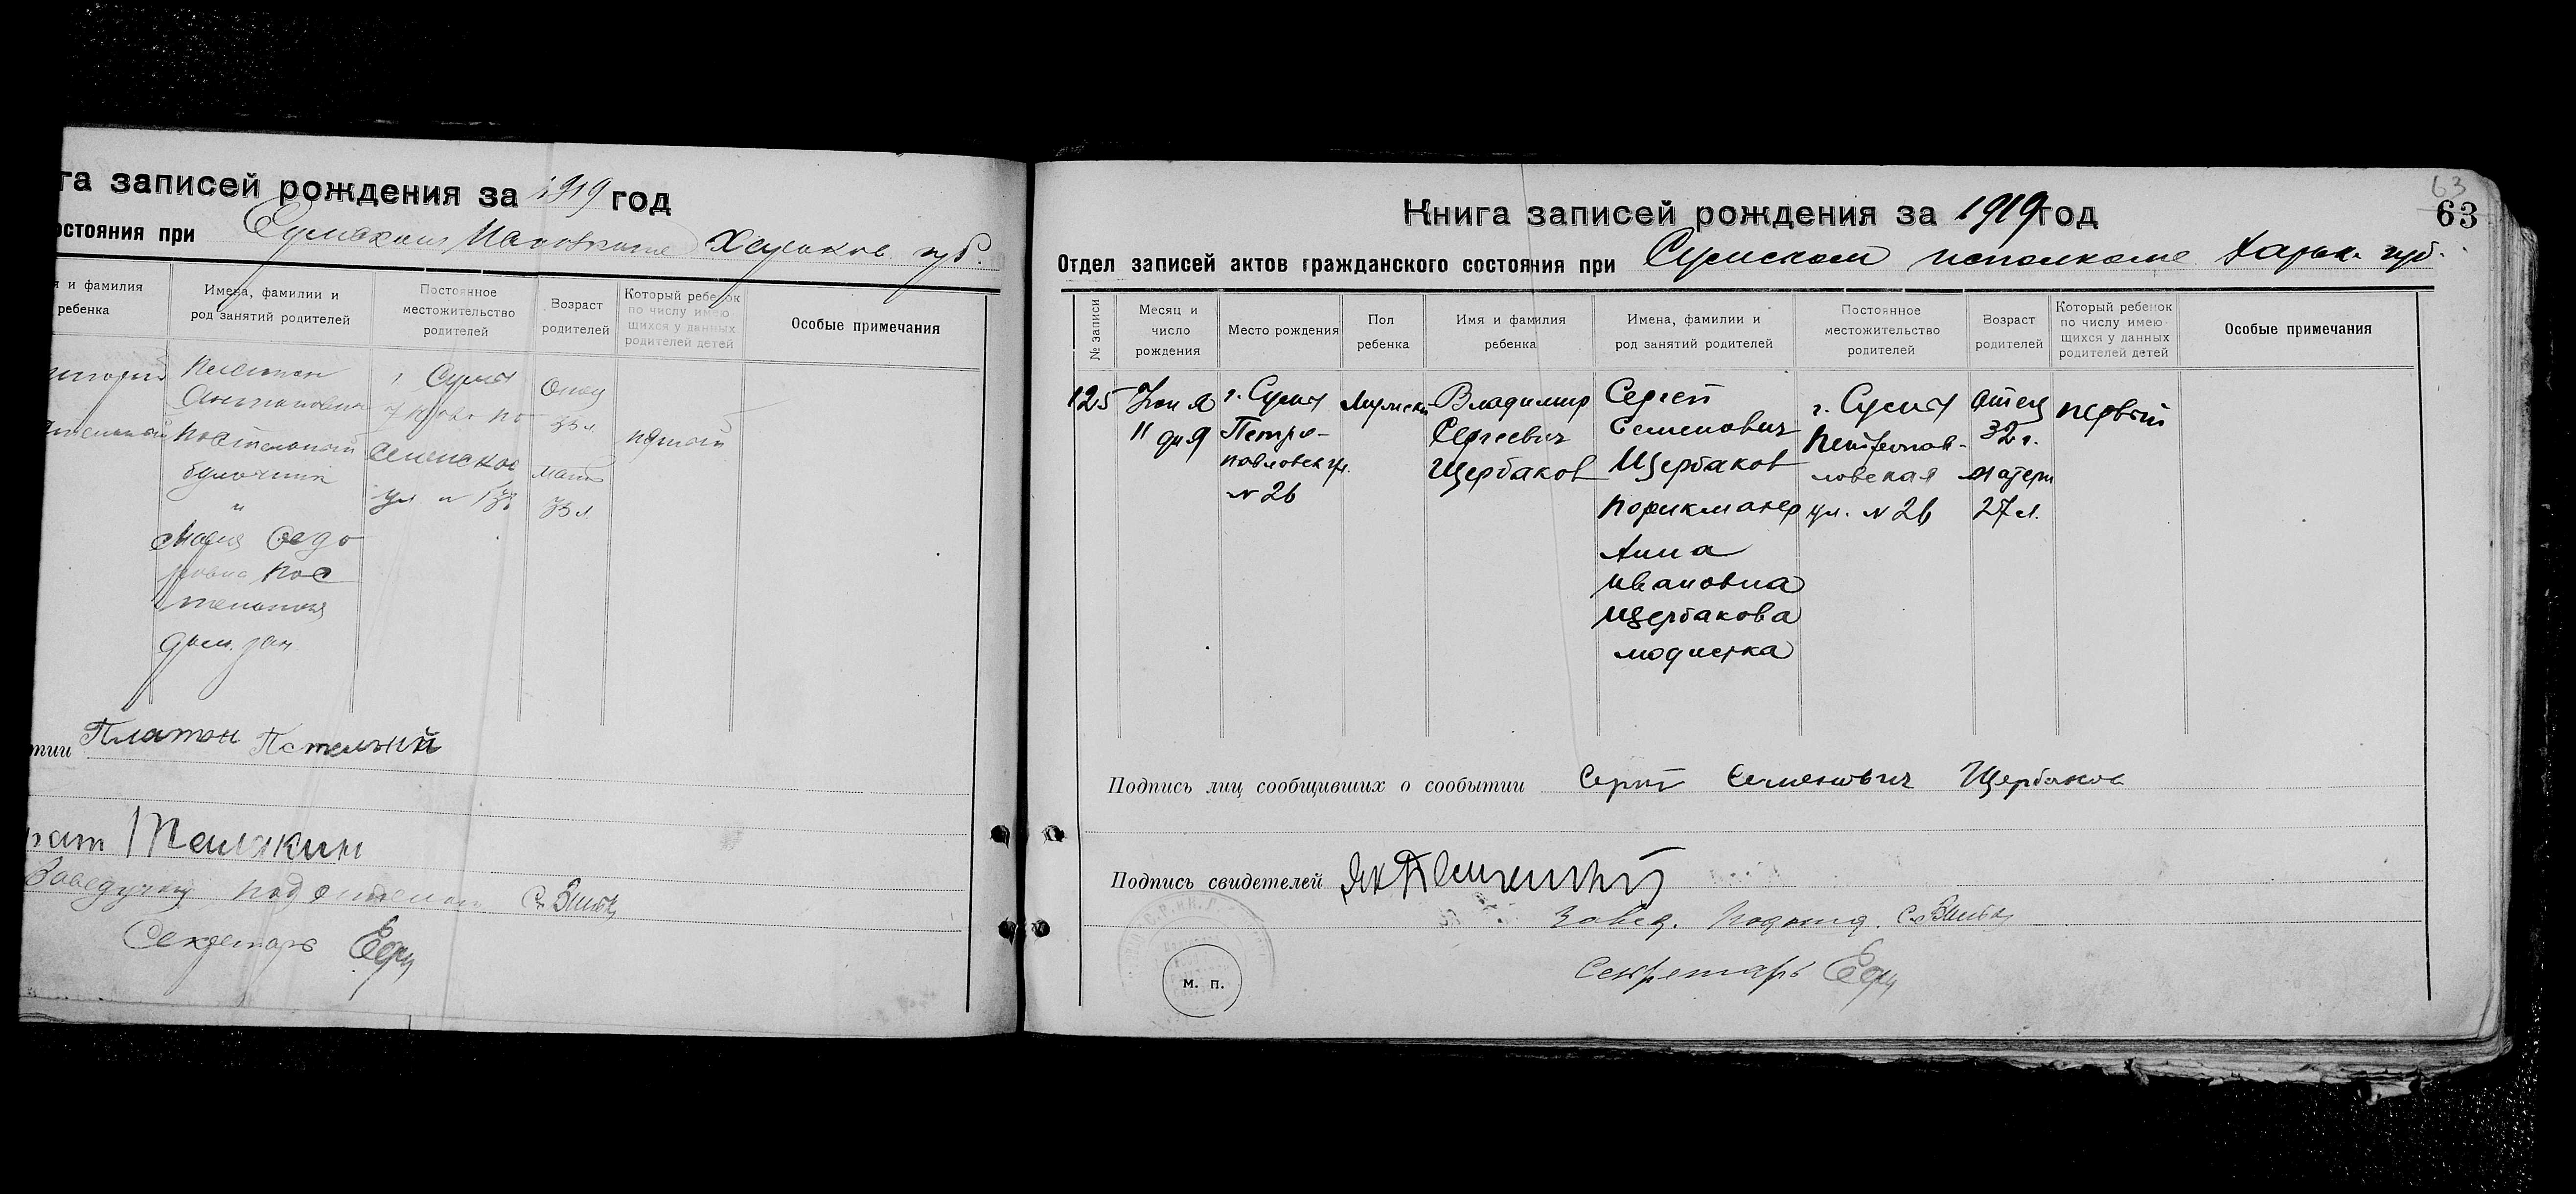 га записей рождения за 1919 год
остояния при Сумском Исполкоме Харьков. губ.
я и фамилия
ребенка
Имена, фамилии и
род занятий родителей
Постоянное
местожительство
родителей
Возраст
родителей
Который ребенок
по числу имею
щихся у данных
родителей детей
Особые примечания
Постельный
булочник
"
Мария Федо
ровна Пос
тельная
дом. зан.
г. Сумы
ул. №
Отец
35 л.
мать
35 л.
пятый
тии Платон Постельный
Заведующ подотделом
Секретарь
63
63
Книга записей рождения за 1919 год
Отдел записей актов гражданского состояния при Сумском исполкоме Харьк. губ.
№ записи
Месяц и
число
рождения
Место рождения
Пол
ребенка
Имя и фамилия
ребенка
Имена, фамилии и
род занятий родителей
Постоянное
местожительство
родителей
Возраст
родителей
Который ребенок
по числу имею-
щихся у данных
родителей детей
Особые примечания
125
Июня
11 дня
г. Сумы
Петро-
павловск ул.
№ 26
Мужской
Владимир
Сергеевич
Щербаков
Сергей
Семенович
Щербаков
парикмахер
Анна
Ивановна
Щербакова
модистка
г. Сумы
Петропав-
ловская
ул. № 26
отец
32 г.
матери
27 л.
первый
Подпись лиц сообщивших о сообытии Сергей Семенович Щербаков
Подпись свидетелей
Завед. Подотд.
Секретарь
м. п.